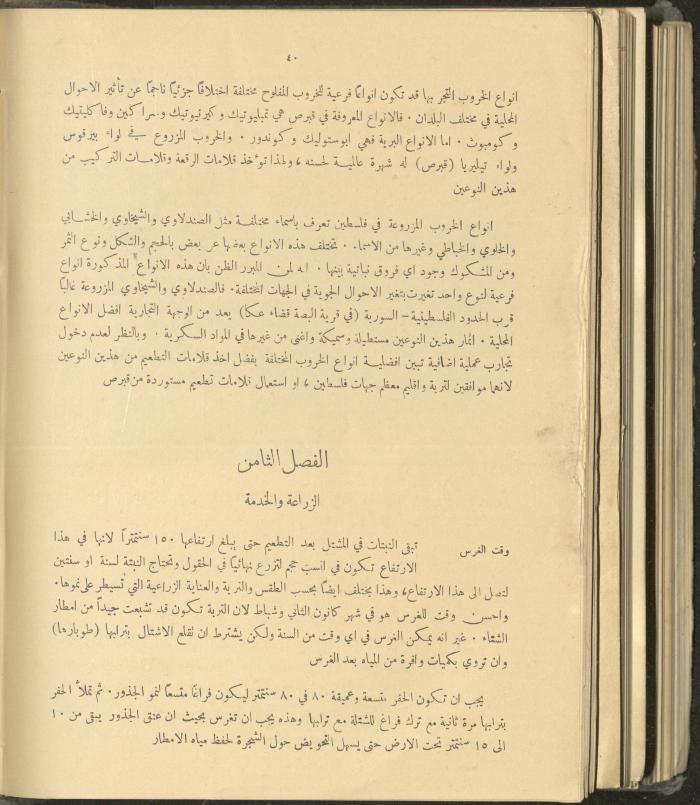 ٤٠
انواع الخروب المتجر بها قد تكون انواعًا فرعية للخروب المفلوح مختلفة اختلافًا جزئيًا ناجمًا عن تأثير الاحوال
المحلية في مختلف البلدان . فالانواع المعروفة في قبرص هي تمبليوتيك وكيرنيوتيك وسراكين وفاكليتيك
وكومبوث . اما الانواع البرية فهي ابوستوليك وكوندور . والخروب المزروع في لواء بيرفوس
ولواء تيليريا (قبرص) له شهرة عالمية لحسنه ، ولهذا تؤخذ قلامات الرقعة وقلامات التركيب من
هذين النوعين
انواع الخروب المزروعة في فلسطين تعرف باسماء مختلفة مثل الصندلاوي والشيحاوي والخشابي
والخلوي والخباطي وغيرها من الاسماء . تختلف هذه الانواع بعضها عن بعض بالحجم والشكل ونوع الثمر
ومن المشكوك وجود اي فروق نباتية بينها . انه لمن المبرر الظن بان هذه الانواع المذكورة انواع
فرعية لنوع واحد تغيرت بتغير الاحوال الجوية في الجهات المختلفة . فالصندلاوي والشيحاوي المزروعة غالبًا
قرب الحدود الفلسطينية - السورية (في قرية البصة قضاء عكا) يعد من الوجهة التجارية افضل الانواع
المحلية . اثمار هذين النوعين مستطيلة وسميكة واغنى من غيرها في المواد السكرية . وبالنظر لعدم دخول
تجارب عملية اضافية تبين افضلية انواع الخروب المختلفة يفضل اخذ قلامات التطعيم من هذين النوعين
لانهما موافقين لتربة واقليم معظم جهات فلسطين ، او استعمال قلامات تطعيم مستوردة من قبرص
الفصل الثامن
الزراعة والخدمة
وقت الغرس تبقى النبتات في المشتل بعد التطعيم حتى يبلغ ارتفاعها ١٥٠ سنتمترًا لانها في هذا
الارتفاع تكون في انسب حجم لتزرع نهائيًا في الحقول وتحتاج النبتة لسنة او سنتين
لتصل الى هذا الارتفاع ، وهذا يختلف ايضًا بحسب الطقس والتربة والعناية الزراعية التي تسيطر على نموها .
واحسن وقت للغرس هو في شهر كانون الثاني وشباط لان التربة تكون قد تشبعت جيدًا من امطار
الشتاء . غير انه يمكن الغرس في اي وقت من السنة ولكن يشترط ان تقلع الاشتال بترابها (طوبارها)
وان تروي بكميات وافرة من المياه بعد الغرس
يجب ان تكون الحفر متسعة وعميقة ٨٠ في ٨٠ سنتمتر ليكون فراغًا متسعًا لنمو الجذور . ثم تملأ الحفر
بترابها مرة ثانية مع ترك فراغ للشتلة مع ترابها وهذه يجب ان تغرس بحيث ان عنق الجذور يبقى من ١٠
الى ١٥ سنتمتر تحت الارض حتى يسهل التحويض حول الشجرة لحفظ مياه الامطار